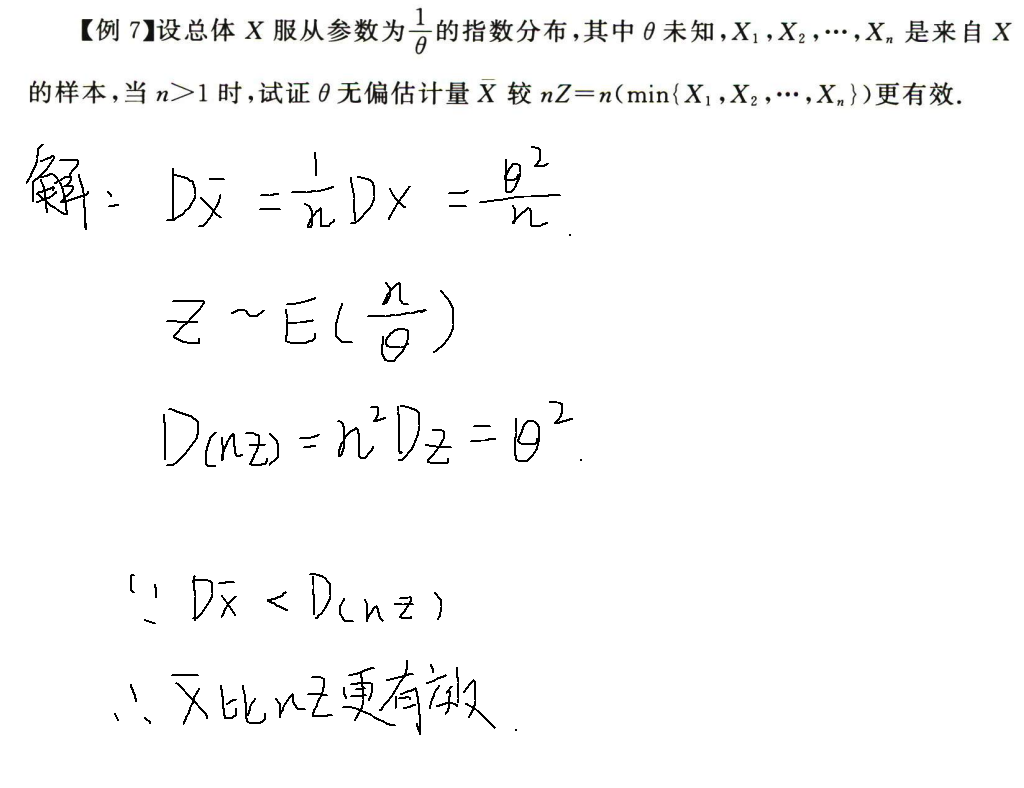 【例 7】设总体 X 服从参数为 1/θ 的指数分布,其中 θ 未知,X₁,X₂,⋯,Xₙ 是来自 X
的样本,当 n>1 时,试证 θ 无偏估计量 X̄ 较 nZ=n(min{X₁,X₂,⋯,Xₙ})更有效.
解: DX̄ = 1/n DX = θ²/n.
Z ~ E(n/θ)
D(nZ) = n²DZ = θ².
∵ DX̄ < D(nZ)
∴ X̄比nZ更有效.